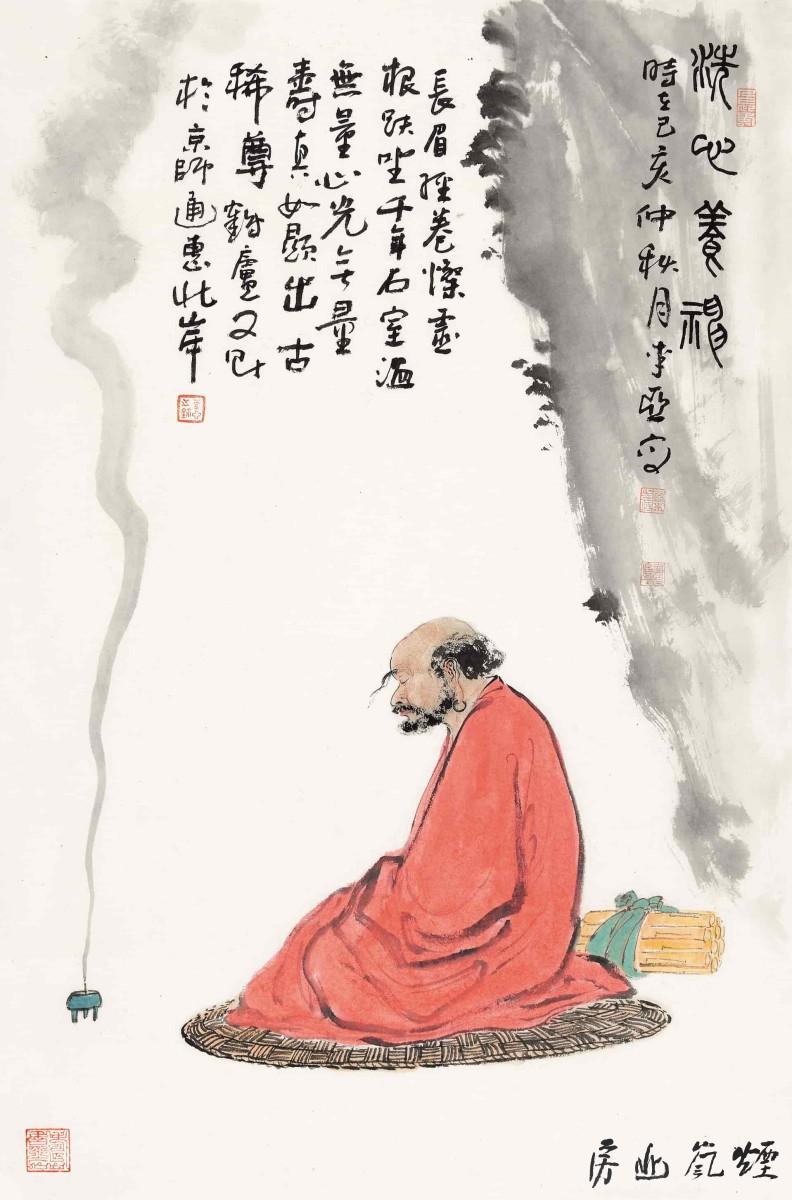 洗心養神
時在己亥仲秋月李亞
長眉經卷燦靈
根趺坐千年石室溫
無量心光无量
壽真如顯出古
稀尊鶴廬又
於京師通惠北岸
煙房